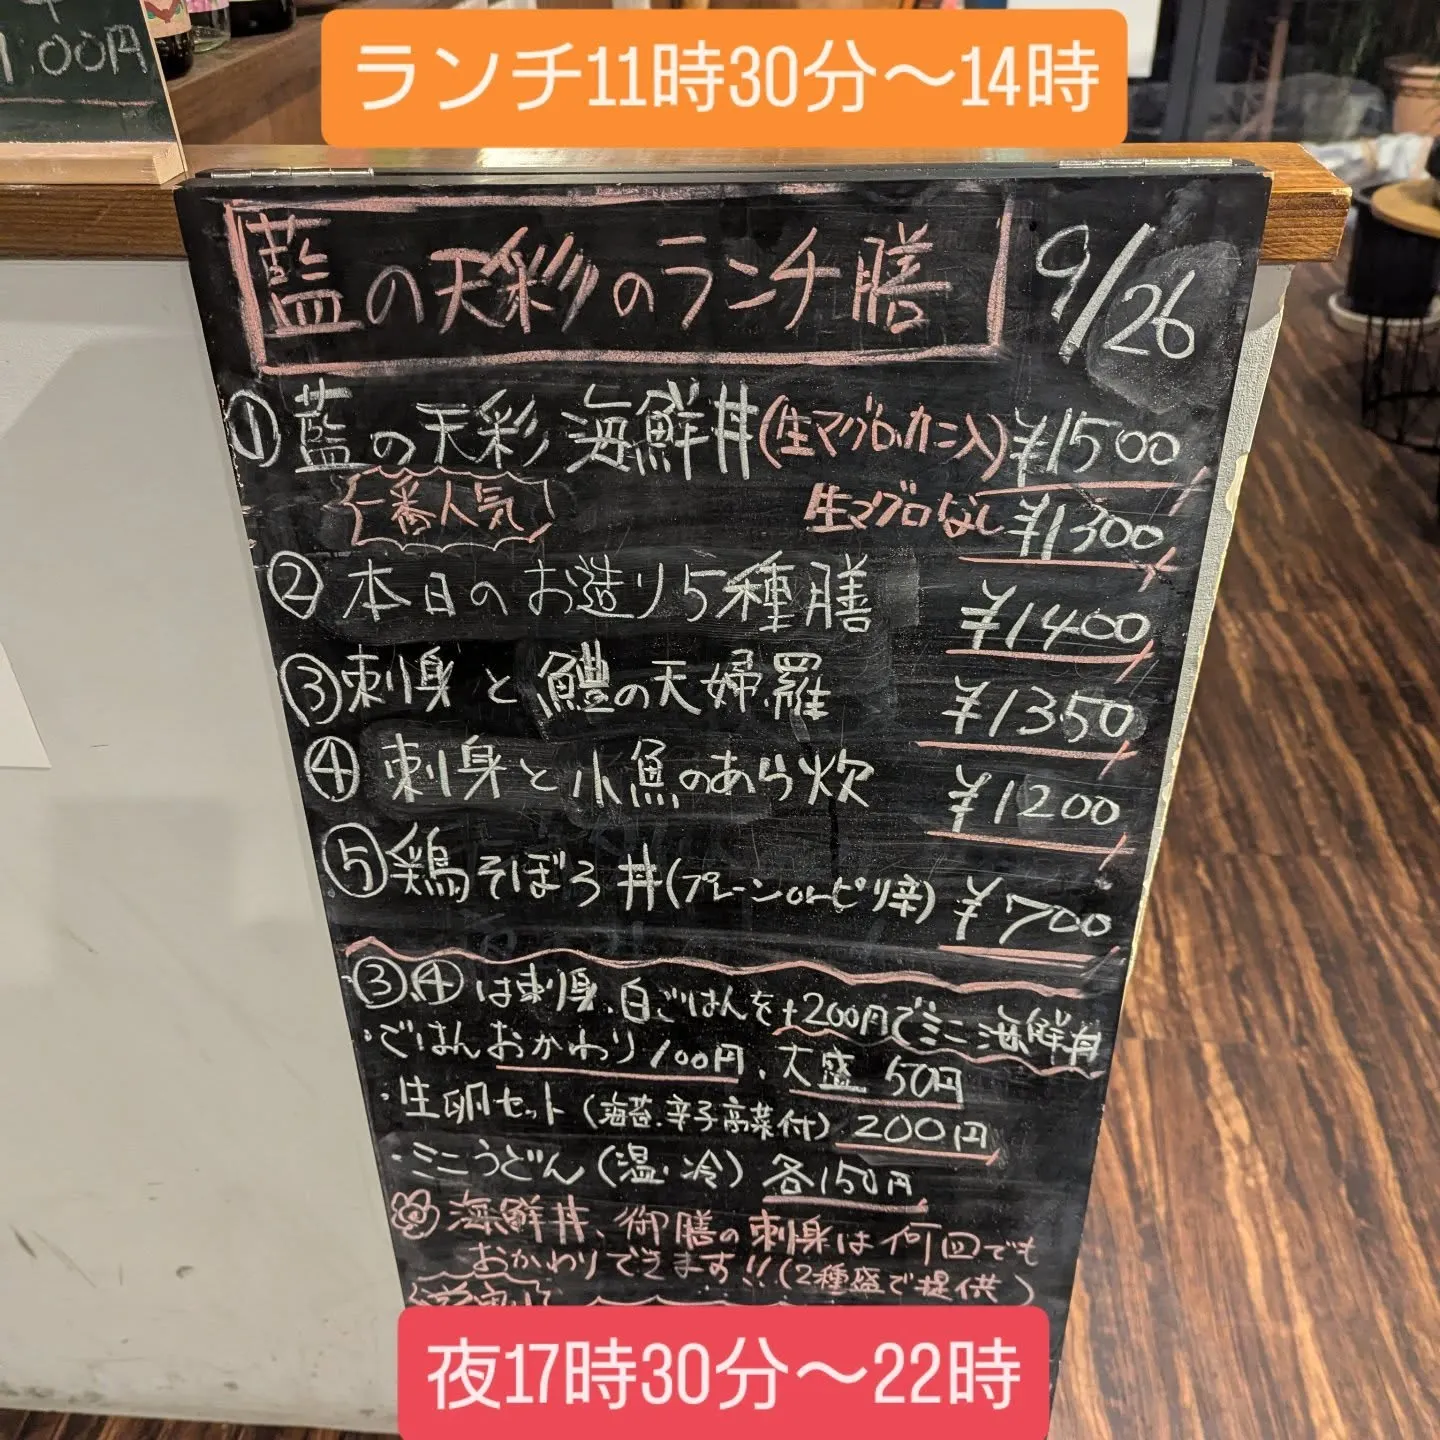 1,00円
ランチ11時30分〜14時
藍の天彩のランチ膳 9/26
① 藍の天彩 海鮮丼(生マグロ、カニ入)¥1500
一番人気 生マグロなし ¥1300
② 本日のお造り5種膳 ¥1400
③ 刺身と鱧の天婦羅 ¥1350
④ 刺身と小魚のあら炊 ¥1200
⑤ 鶏そぼろ丼(プレーンorピリ辛) ¥700
③.④は刺身、白ごはんを+200円でミニ海鮮丼
・ごはんおかわり100円、大盛50円
・生卵セット(海苔、辛子高菜付)200円
・ミニうどん(温・冷)各150円
海鮮丼、御膳の刺身は何回でも
おかわりできます!!(2種盛で提供)
夜17時30分〜22時